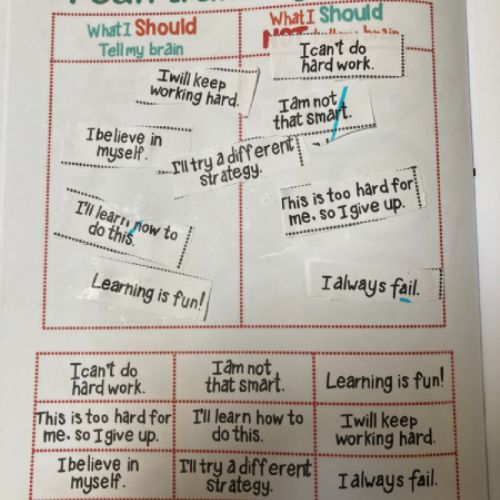 What I Should
Tell my brain
What I Should
NOT
I can't do
hard work.
I will keep
working hard.
I am not
that smart.
I believe in
myself.
I'll try a different
strategy.
This is too hard for
me, so I give up.
I'll learn how to
do this.
Learning is fun!
I always fail.
I can't do
hard work.
I am not
that smart.
Learning is fun!
This is too hard for
me, so I give up.
I'll learn how to
do this.
I will keep
working hard.
I believe in
myself.
I'll try a different
strategy.
I always fail.